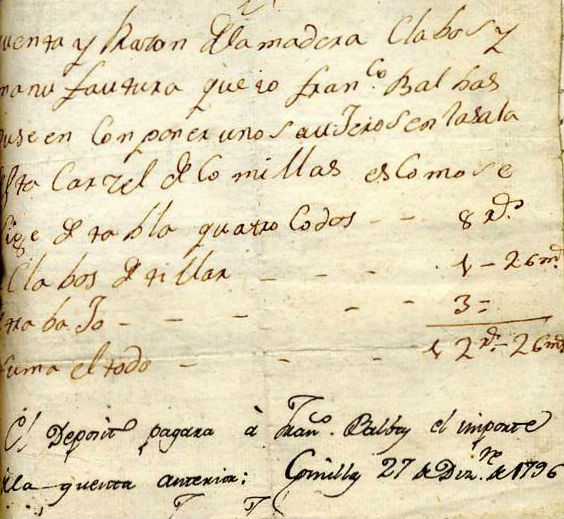 uenta y Razon de la madera Clabos y
manufautura que io fran.co Balbas
puse en Componer unos aujeros en la sala
desta Carzel de Comillas es Como se
sige de tabla quatro Codos - - 8 Rs.
Clabos de tillar - - - - 1 - 26 mrs.
trabaJo - - - - - 3 =
suma el todo - - - 12 Rs. - 26 mrs.
El Deposit.o pagara à Fran.co Balbas el importe
de la quenta anterior: Comillas 27 de Diz.re de 1796